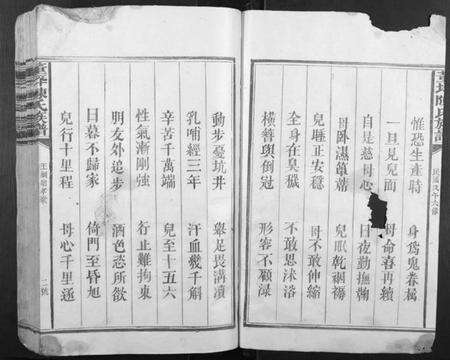 惟恐生產時 身為鬼眷屬
一旦見兒面 母命喜再續
自是慈母心 日夜勤撫鞠
母臥濕簟蓆 兒眠乾裀褥
兒睡正安穩 母不敢伸縮
全身在臭穢 不敢思沐浴
橫簪與倒冠 形容不顧淥
動步憂坑井 舉足畏溝瀆
乳哺經三年 汗血幾千斛
辛苦千萬端 兒至十五六
性氣漸剛強 行止難拘束
朋友外追步 酒色恣所欲
日暮不歸家 倚門至昏旭
兒行十里程 母心千里逐
陳氏族譜
勸孝歌
二號